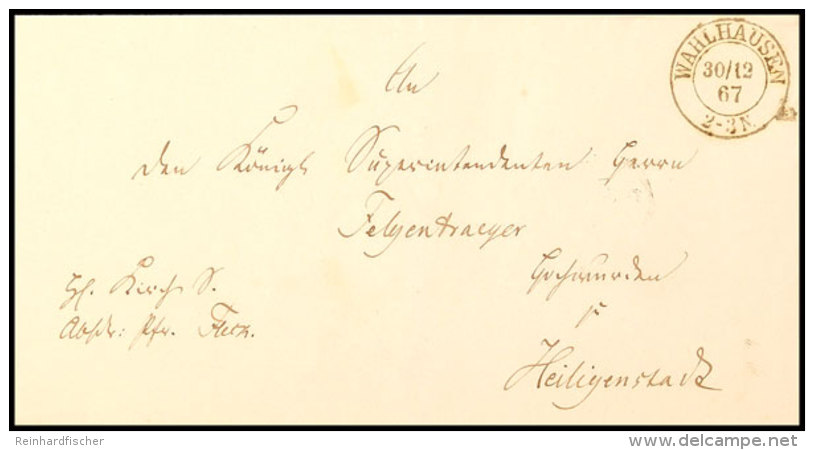 WAHLHAUSEN
30/12
67
2-3 N.
An
den Königl. Superintendenten Herrn
Felgentraeger
Hochwürden
Heiligenstadt
Kirch S.
Absdr: Pfr.
Reinhardfischer
delcampe.net